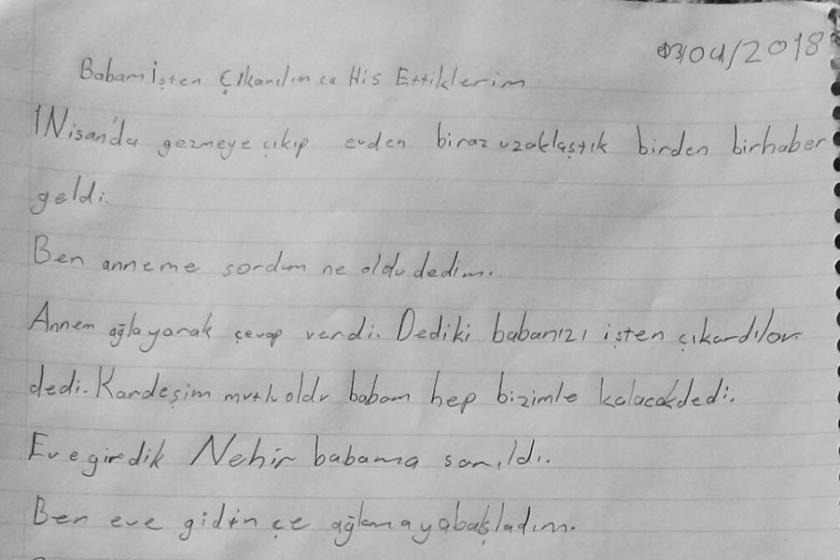 03/04/2018
Babam İşten Çıkarılınca His Ettiklerim
1Nisan'da gezmeye çıkıp evden biraz uzaklaştık birden birhaber
geldi.
Ben anneme sordum ne oldu dedim.
Annem ağlayarak çevap verdi. Dediki babanızı işten çıkardılar
dedi. Kardeşim mutlu oldu babam hep bizimle kalacakdedi.
Eve girdik Nehir babama sarıldı.
Ben eve gidinçe ağlamayabaşladım.